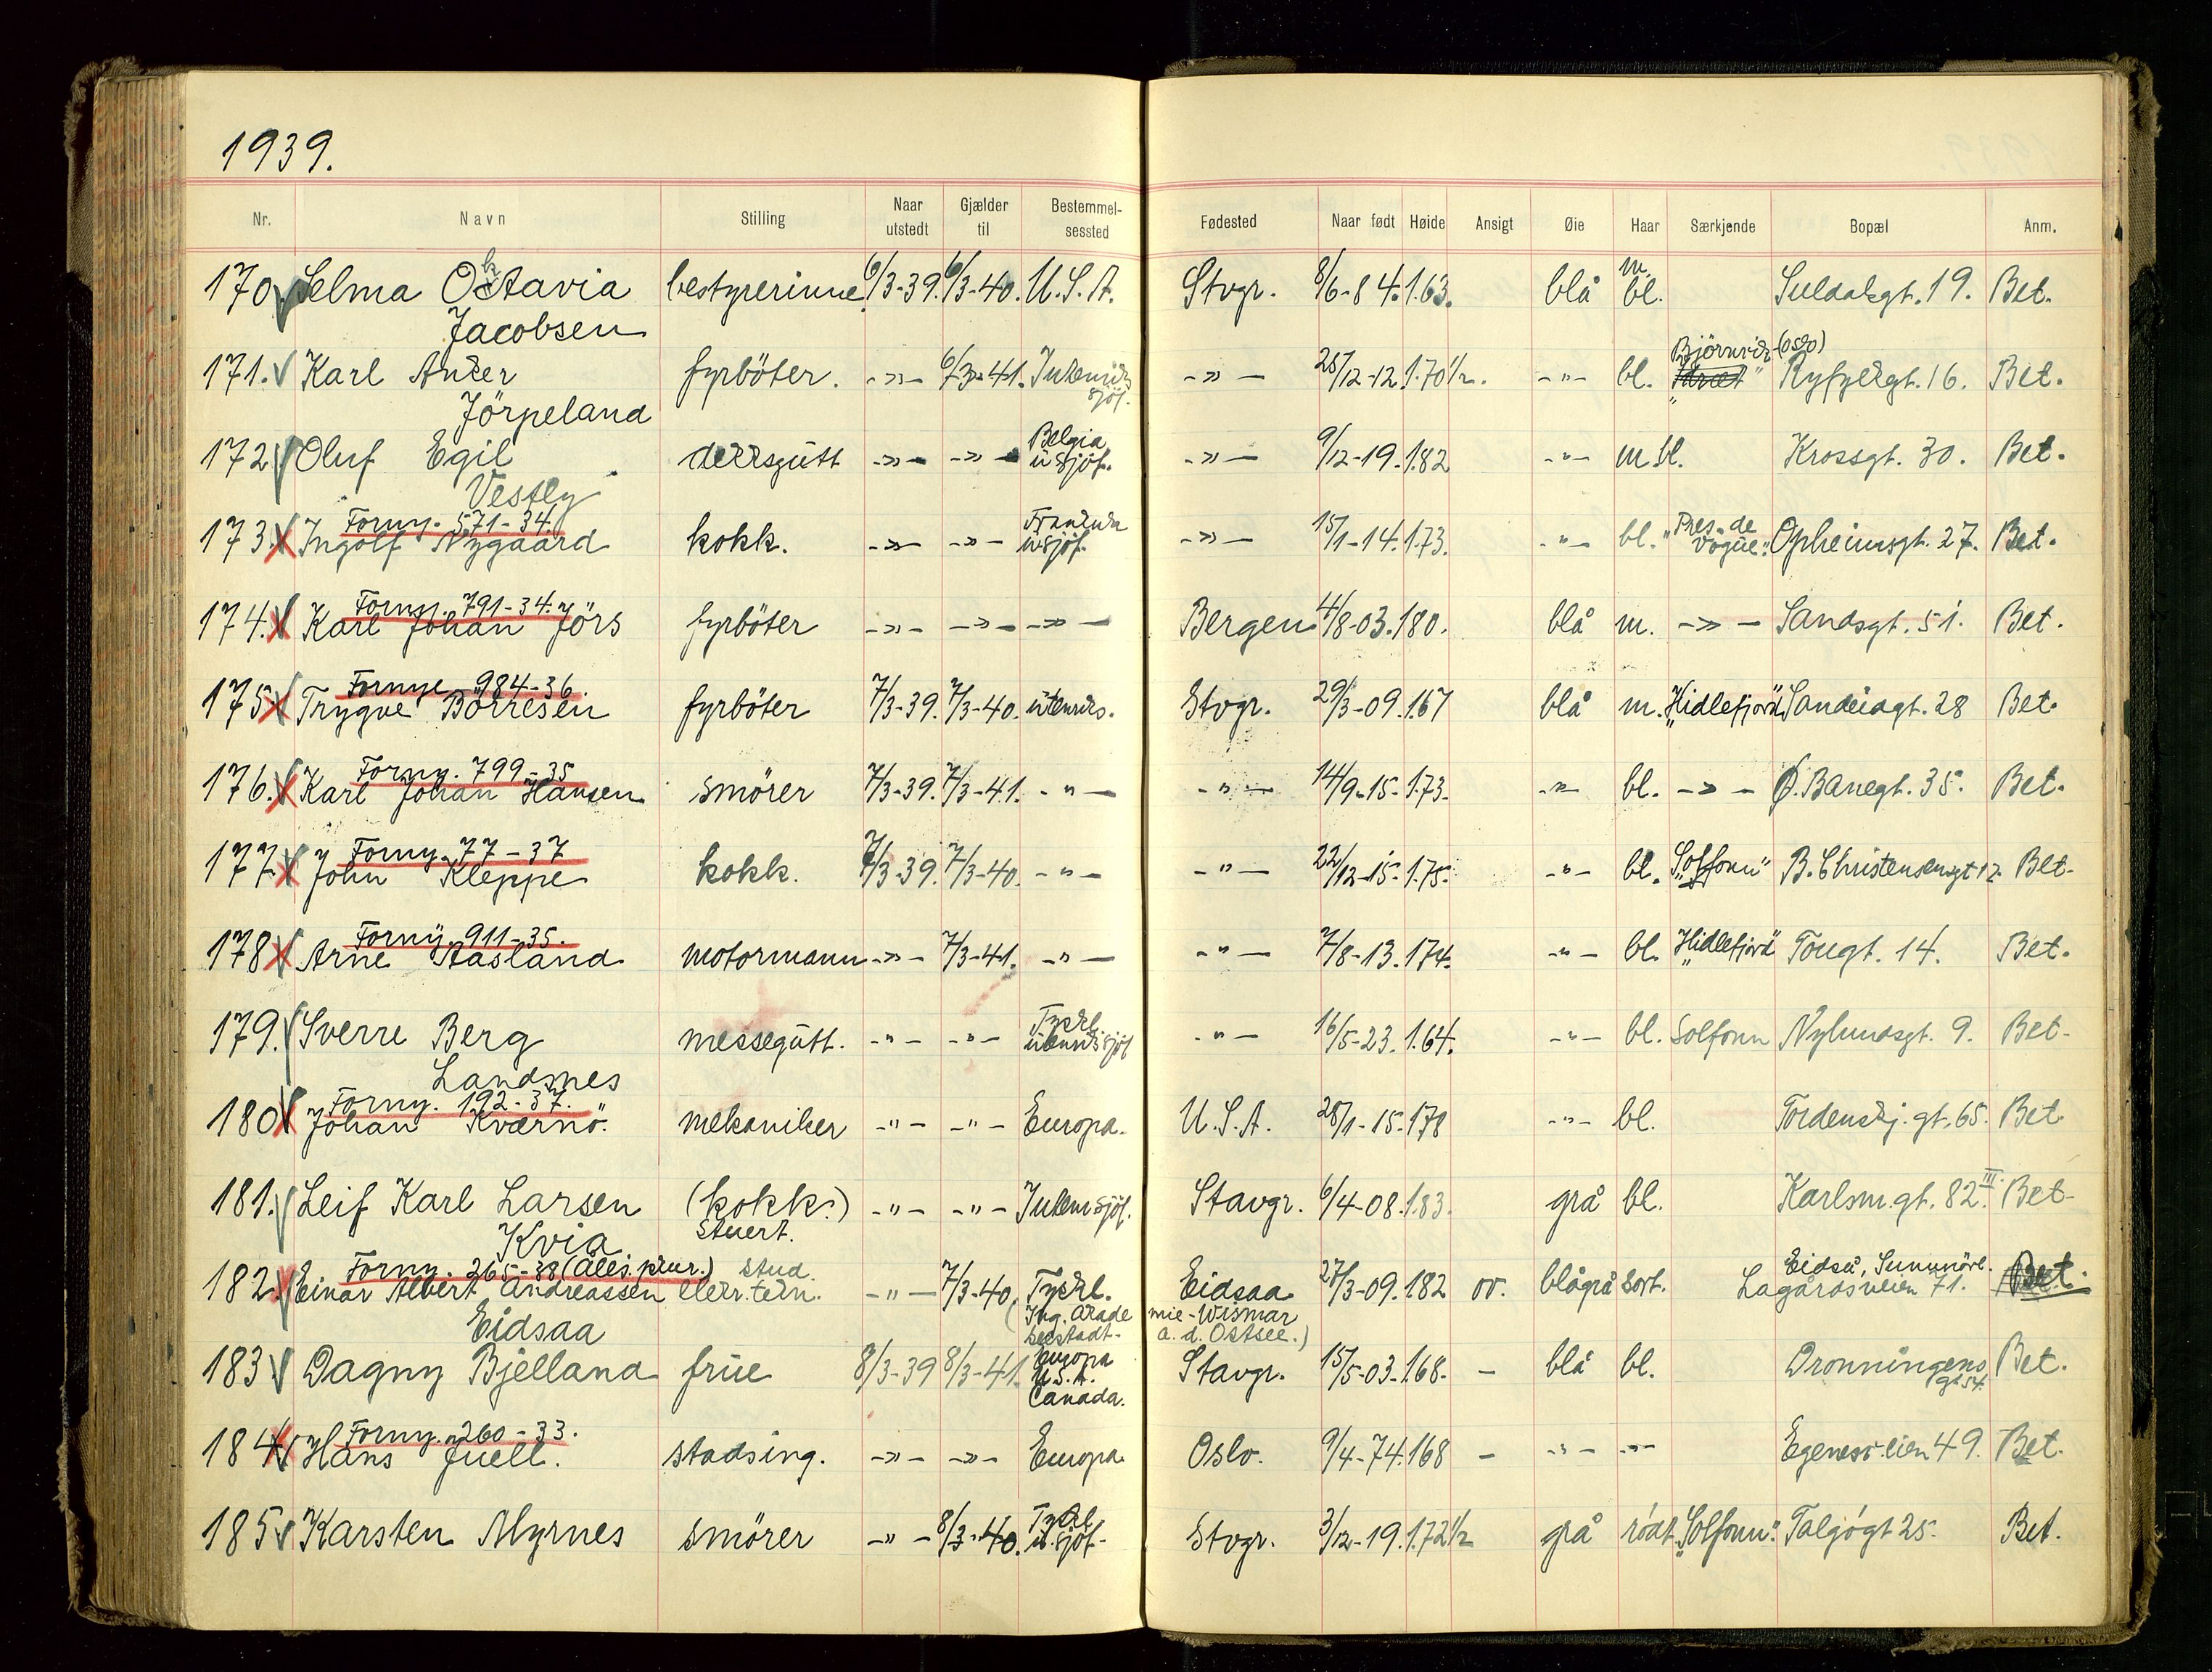 1939.
Nr. Navn Stilling Naar utstedt Gjælder til Bestemmel-sessted Fødested Naar født Høide Ansigt Øie Haar Særkjende Bopæl Anm.
170 Selma Oktavia bestyrerinne 6/3-39. 6/3-40. U.S.A. Stvgr. 8/6-84. 1.63. blå m. bl. Suldalsgt. 19. Bet.
Jacobsen
171. Karl Anker fyrböter. -»- 6/3-41. Sjöf. -»- 28/12-12. 1.70 1/2. -"- bl. Björnvik (Oslo) Ryfylkegt. 16. Bet.
Jörpeland
172 Oluf Egil dekksgutt -»- -»- Belgia u sjöf. -»- 9/12-19. 1.82 -"- m.bl. Krossgt. 30. Bet.
Vestly
Forny. 571-34.
173. Ingolf Nygaard kokk. -»- -»- sjöf. -»- 15/1-14. 1.73. -"- bl. "Pres. de Vogüe". Opheimsgt. 27. Bet.
Forny. 791-34.
174. Karl Johan Jörs fyrböter -»- -»- -»- Bergen 4/8-03. 180. blå m. -»- Sandsgt. 51. Bet.
Fornye 984-36.
175 Trygve Börresen fyrböter 7/3-39. 7/3-40. utenriks. Stvgr. 29/3-09. 1.67 blå m. "Hidlefjord" Sandeidgt. 28 Bet.
Forny. 799-35
176. Karl Johan Hansen smörer 7/3-39. 7/3-41. -"- -"- 14/9-15. 1.73. -"- bl. -»- Ø. Banegt. 35. Bet.
Forny. 77-37
177. John Kleppe kokk. 7/3-39. 7/3-40. -"- -"- 22/12-15. 1.75. -"- bl. "Solfonn" B. Christensensgt 12. Bet.
Forny. 911-35.
178 Arne Aasland motormann -»- 7/3-41. -"- -"- 7/8-13. 174. -"- bl. "Hidlefjord" Tougt. 14. Bet.
179. Sverre Berg messegutt. -"- -"- Tyskl. utenriks sjöf -"- 16/5-23. 1.64. -"- bl. Solfonn Nylundsgt. 9. Bet.
Landsnes
Forny. 192-37.
180 Johan Kværnö. mekaniker -"- -"- Europa. U.S.A. 28/1-15. 178 -"- bl. Tordenskj. gt. 65. Bet
181. Leif Karl Larsen (kokk.) -"- -"- Sjöf. Stavgr. 6/4-08. 1.83. grå bl. Karlsm.gt. 82 III. Bet
Kvia stuert.
Forny. 265-38 stud. Eidså, Sunnmöre.
182. Einar Albert Andreassen elektr. tekn. -"- 7/3-40 Tyskl. Eidsaa 27/3-09. 182 ov. blågrå sort. Lagårdsveien 71. Bet.
Eidsaa (Ing. Akademie-Wismar
Seestadt- a. d. Ostsee.)
183 Dagny Bjelland frue 8/3-39 8/3-41. Europa U.S.A. Canada. Stavgr. 15/5-03. 168. - blå bl. Dronningens gt 54. Bet.
Forny. 260-33.
184 Hans Juell. stadsing. -»- -»- Europa. Oslo. 9/4-74. 168 - -"- -"- Egenesveien 49. Bet.
185 Karsten Myrnes smörer -"- 8/3-40. Tyskl. u. sjöf. Stvgr. 3/12-19. 1.72 1/2 grå rödt "Solfonn". Talgögt 25. Bet.